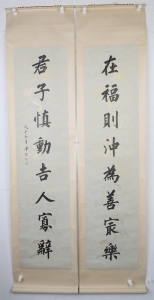 在福則沖為善寂樂
君子慎動吉人寡辭